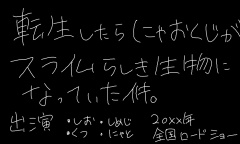 転生したらにゃおくじが
スライムらしき生物に
なっていた件。
出演 ・しお ・しめじ 20xx年
・くつ ・にゃと 全国ロードショー